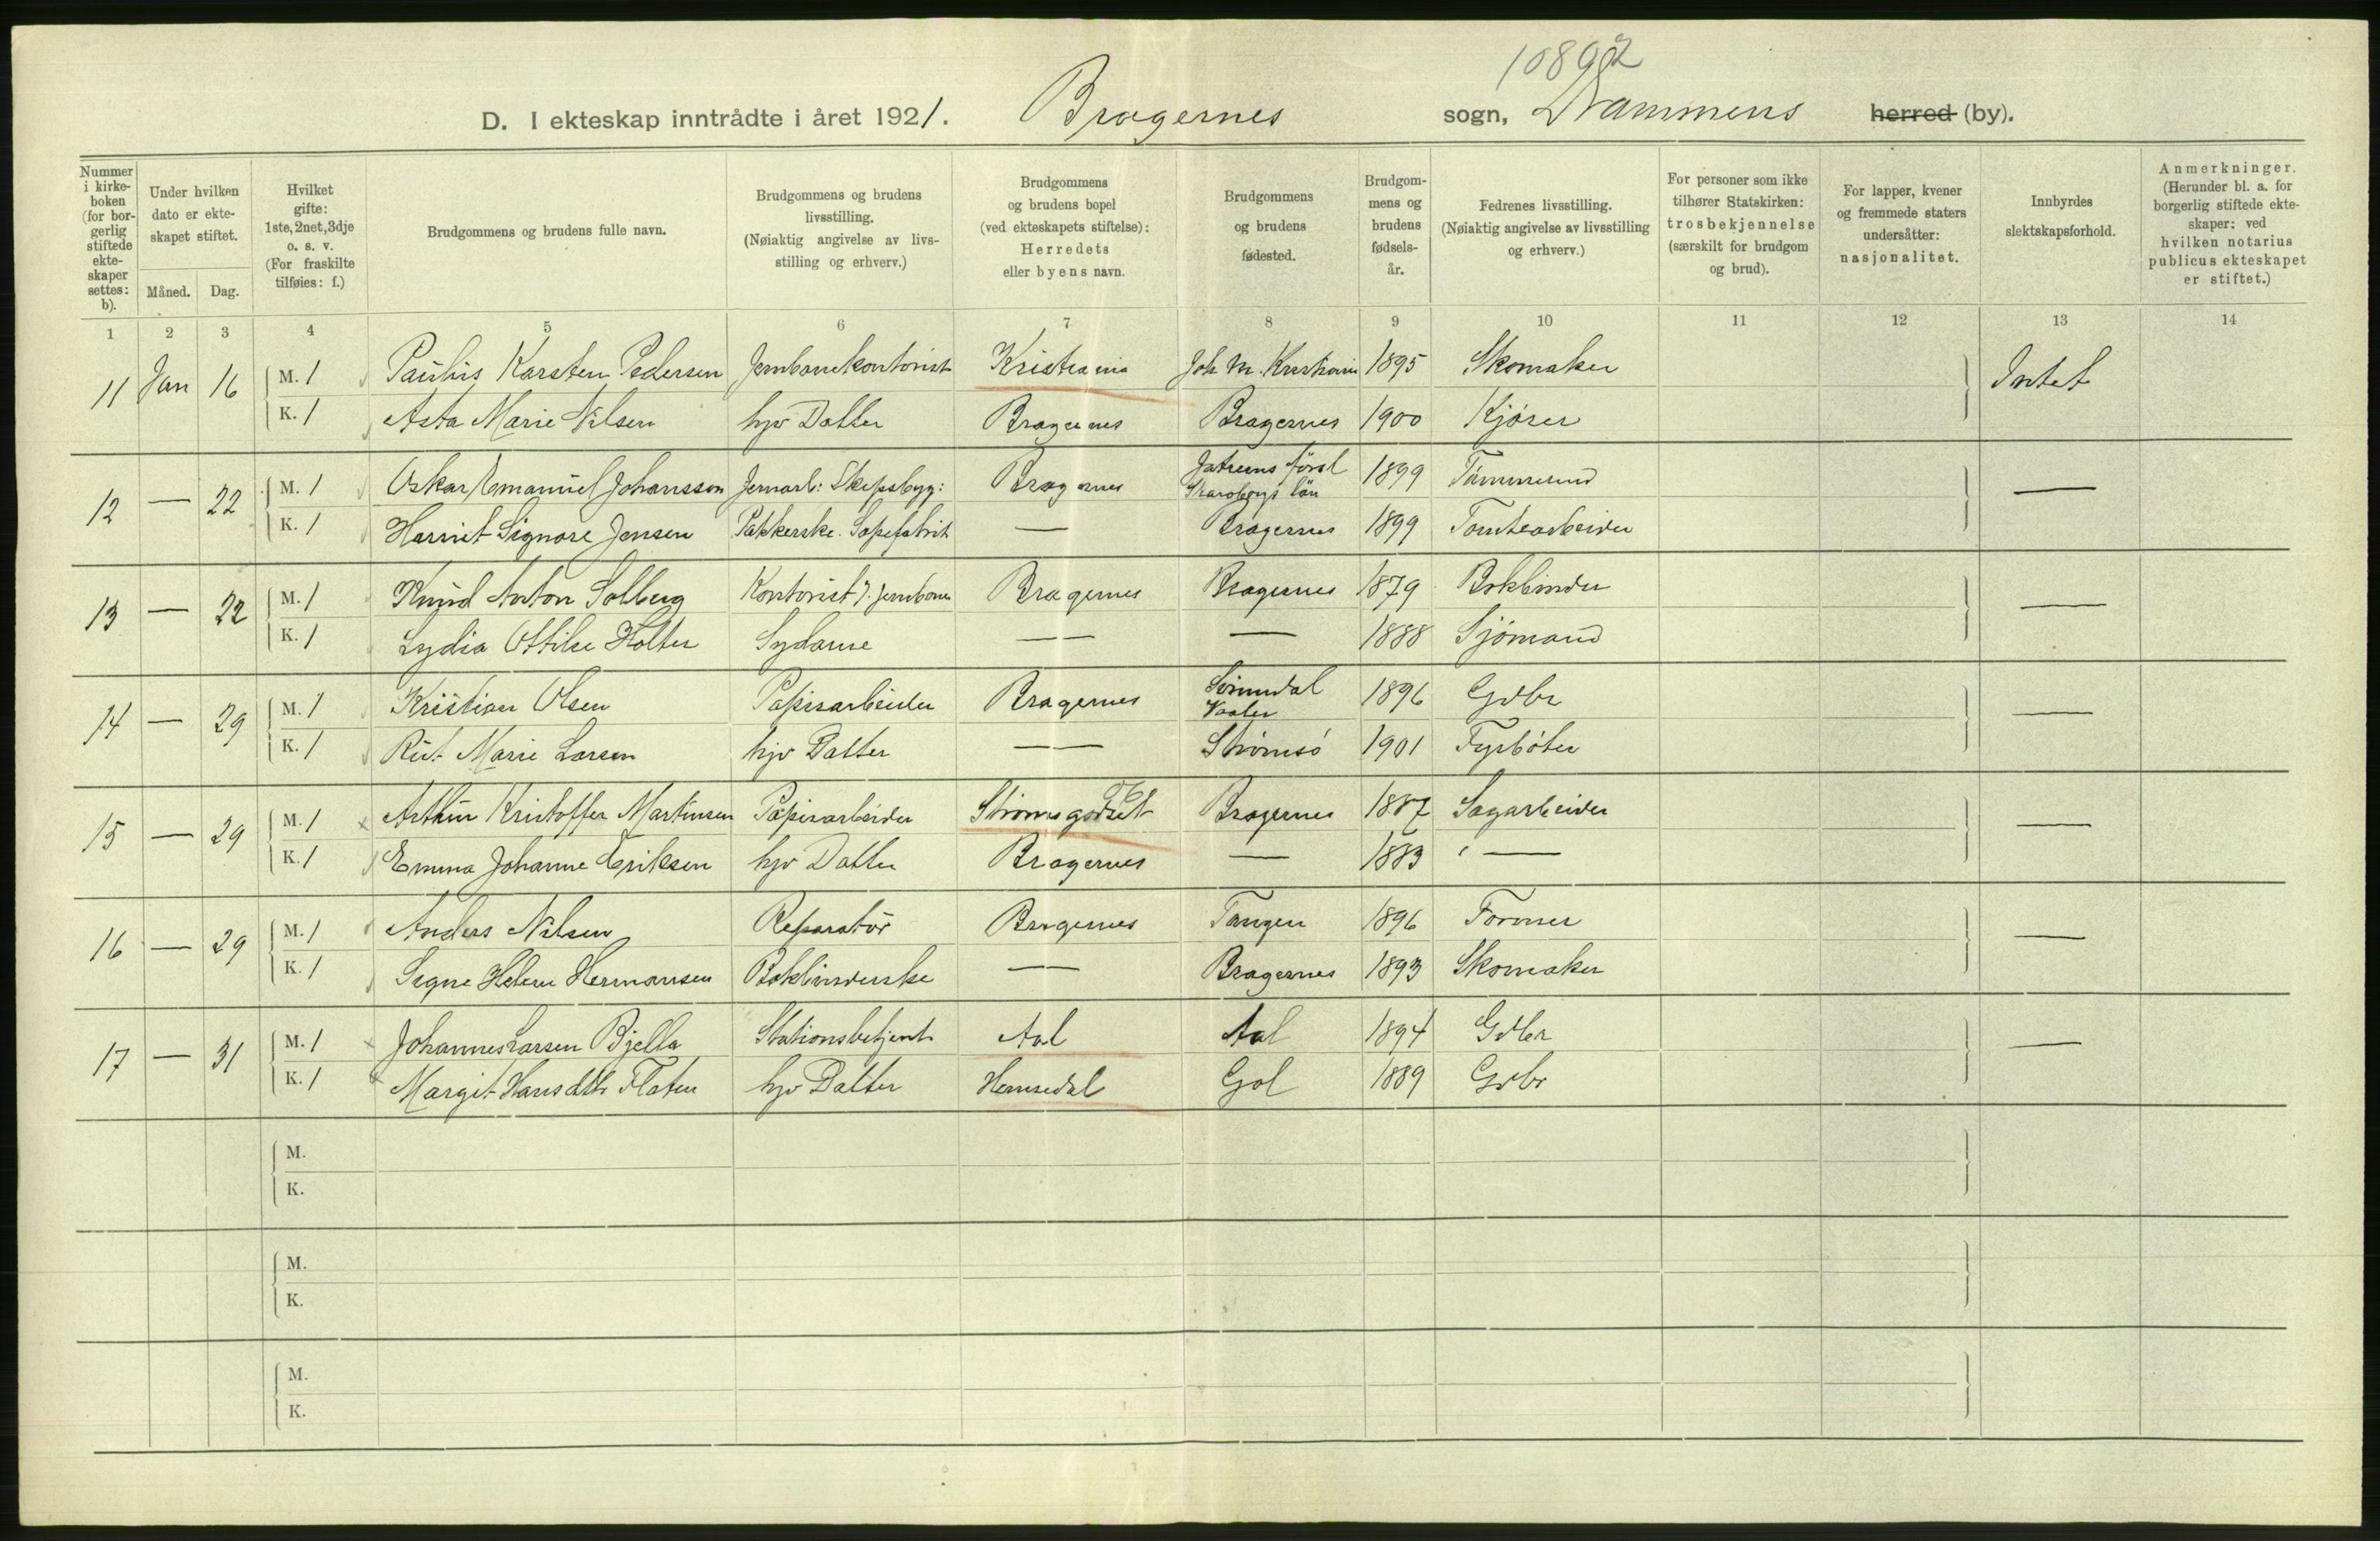 10892
D. I ekteskap inntrådte i året 1921. Bragernes sogn, Drammens herred (by).
Nummer i kirkeboken (for borgerlig stiftede ekteskaper settes: b).
Under hvilken dato er ekteskapet stiftet.
Måned. Dag.
Hvilket gifte: 1ste, 2net, 3dje o. s. v. (For fraskilte tilføies: f.)
Brudgommens og brudens fulle navn.
Brudgommens og brudens livsstilling. (Nøiaktig angivelse av livsstilling og erhverv.)
Brudgommens og brudens bopel (ved ekteskapets stiftelse): Herredets eller byens navn.
Brudgommens og brudens fødested.
Brudgommens og brudens fødselsår.
Fedrenes livsstilling. (Nøiaktig angivelse av livsstilling og erhverv.)
For personer som ikke tilhører Statskirken: trosbekjennelse (særskilt for brudgom og brud).
For lapper, kvener og fremmede staters undersåtter: nasjonalitet.
Innbyrdes slektskapsforhold.
Anmerkninger. (Herunder bl. a. for borgerlig stiftede ekteskaper: ved hvilken notarius publicus ekteskapet er stiftet.)
1 2 3 4 5 6 7 8 9 10 11 12 13 14
11 Jan 16 M. 1 Paulus Karsten Pedersen Jernbanekontorist Kristiania Joh M. Kristiania 1895 Skomaker Intet
K. 1 Asta Marie Nilsen hjv Datter Bragernes Bragernes 1900 Kjører
12 — 22 M. 1 Oskar Emanuel Johansson Jernarb: Skipsbyg: Bragernes Skaraborgs län 1899 Tømmermd —
K. 1 Harriet Signore Jensen Pakkerske. Sæpefabrik — Bragernes 1899 Tomtearbeider
13 — 22 M. 1 Knud Anton Solberg Kontorist v. Jernbane Bragernes Bragernes 1879 Bokbinder —
K. 1 Lydia Ottilie Holter Sydame — — — 1888 Sjømand
14 — 29 M. 1 Kristian Olsen Papirarbeider Bragernes Svinndal Vaaler 1896 Gdbr —
K. 1 Rut Marie Larsen hjv Datter — — Strømsø 1901 Fyrbøter
15 — 29 M. 1 Arthur Kristoffer Martinsen Papirarbeider Strømsgodset Bragernes 1887 Sagarbeider —
K. 1 Emma Johanne Eriksen hjv Datter Bragernes — 1883 —
16 — 29 M. 1 Anders Nilsen Reparatør Bragernes Tangen 1896 Former —
K. 1 Signe Helene Hermansen Bokbinderske — Bragernes 1893 Skomaker
17 — 31 M. 1 Johannes Larsen Bjella Stationsbetjent Aal Aal 1894 Gdbr —
K. 1 Margit Hansdtr Flaten hjv Datter Hemsedal Gol 1889 Gdbr
M.
K.
M.
K.
M.
K.